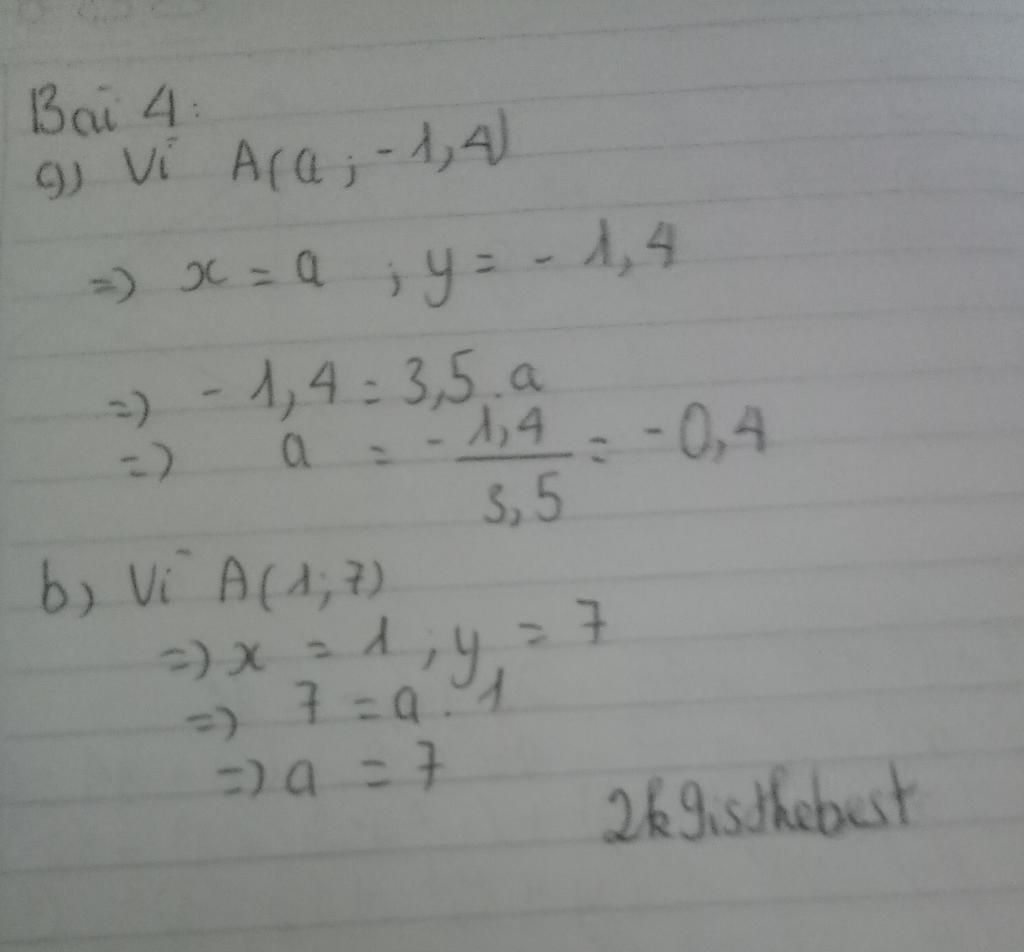 Bài 4:
a) Vì A(a; -1,4)
=> x = a ; y = - 1,4
=> - 1,4 = 3,5.a
=> a = - 1,4 / 3,5 = - 0,4
b) Vì A(1;7)
=> x = 1 ; y = 7
=> 7 = a.1
=> a = 7
2k9isthebest